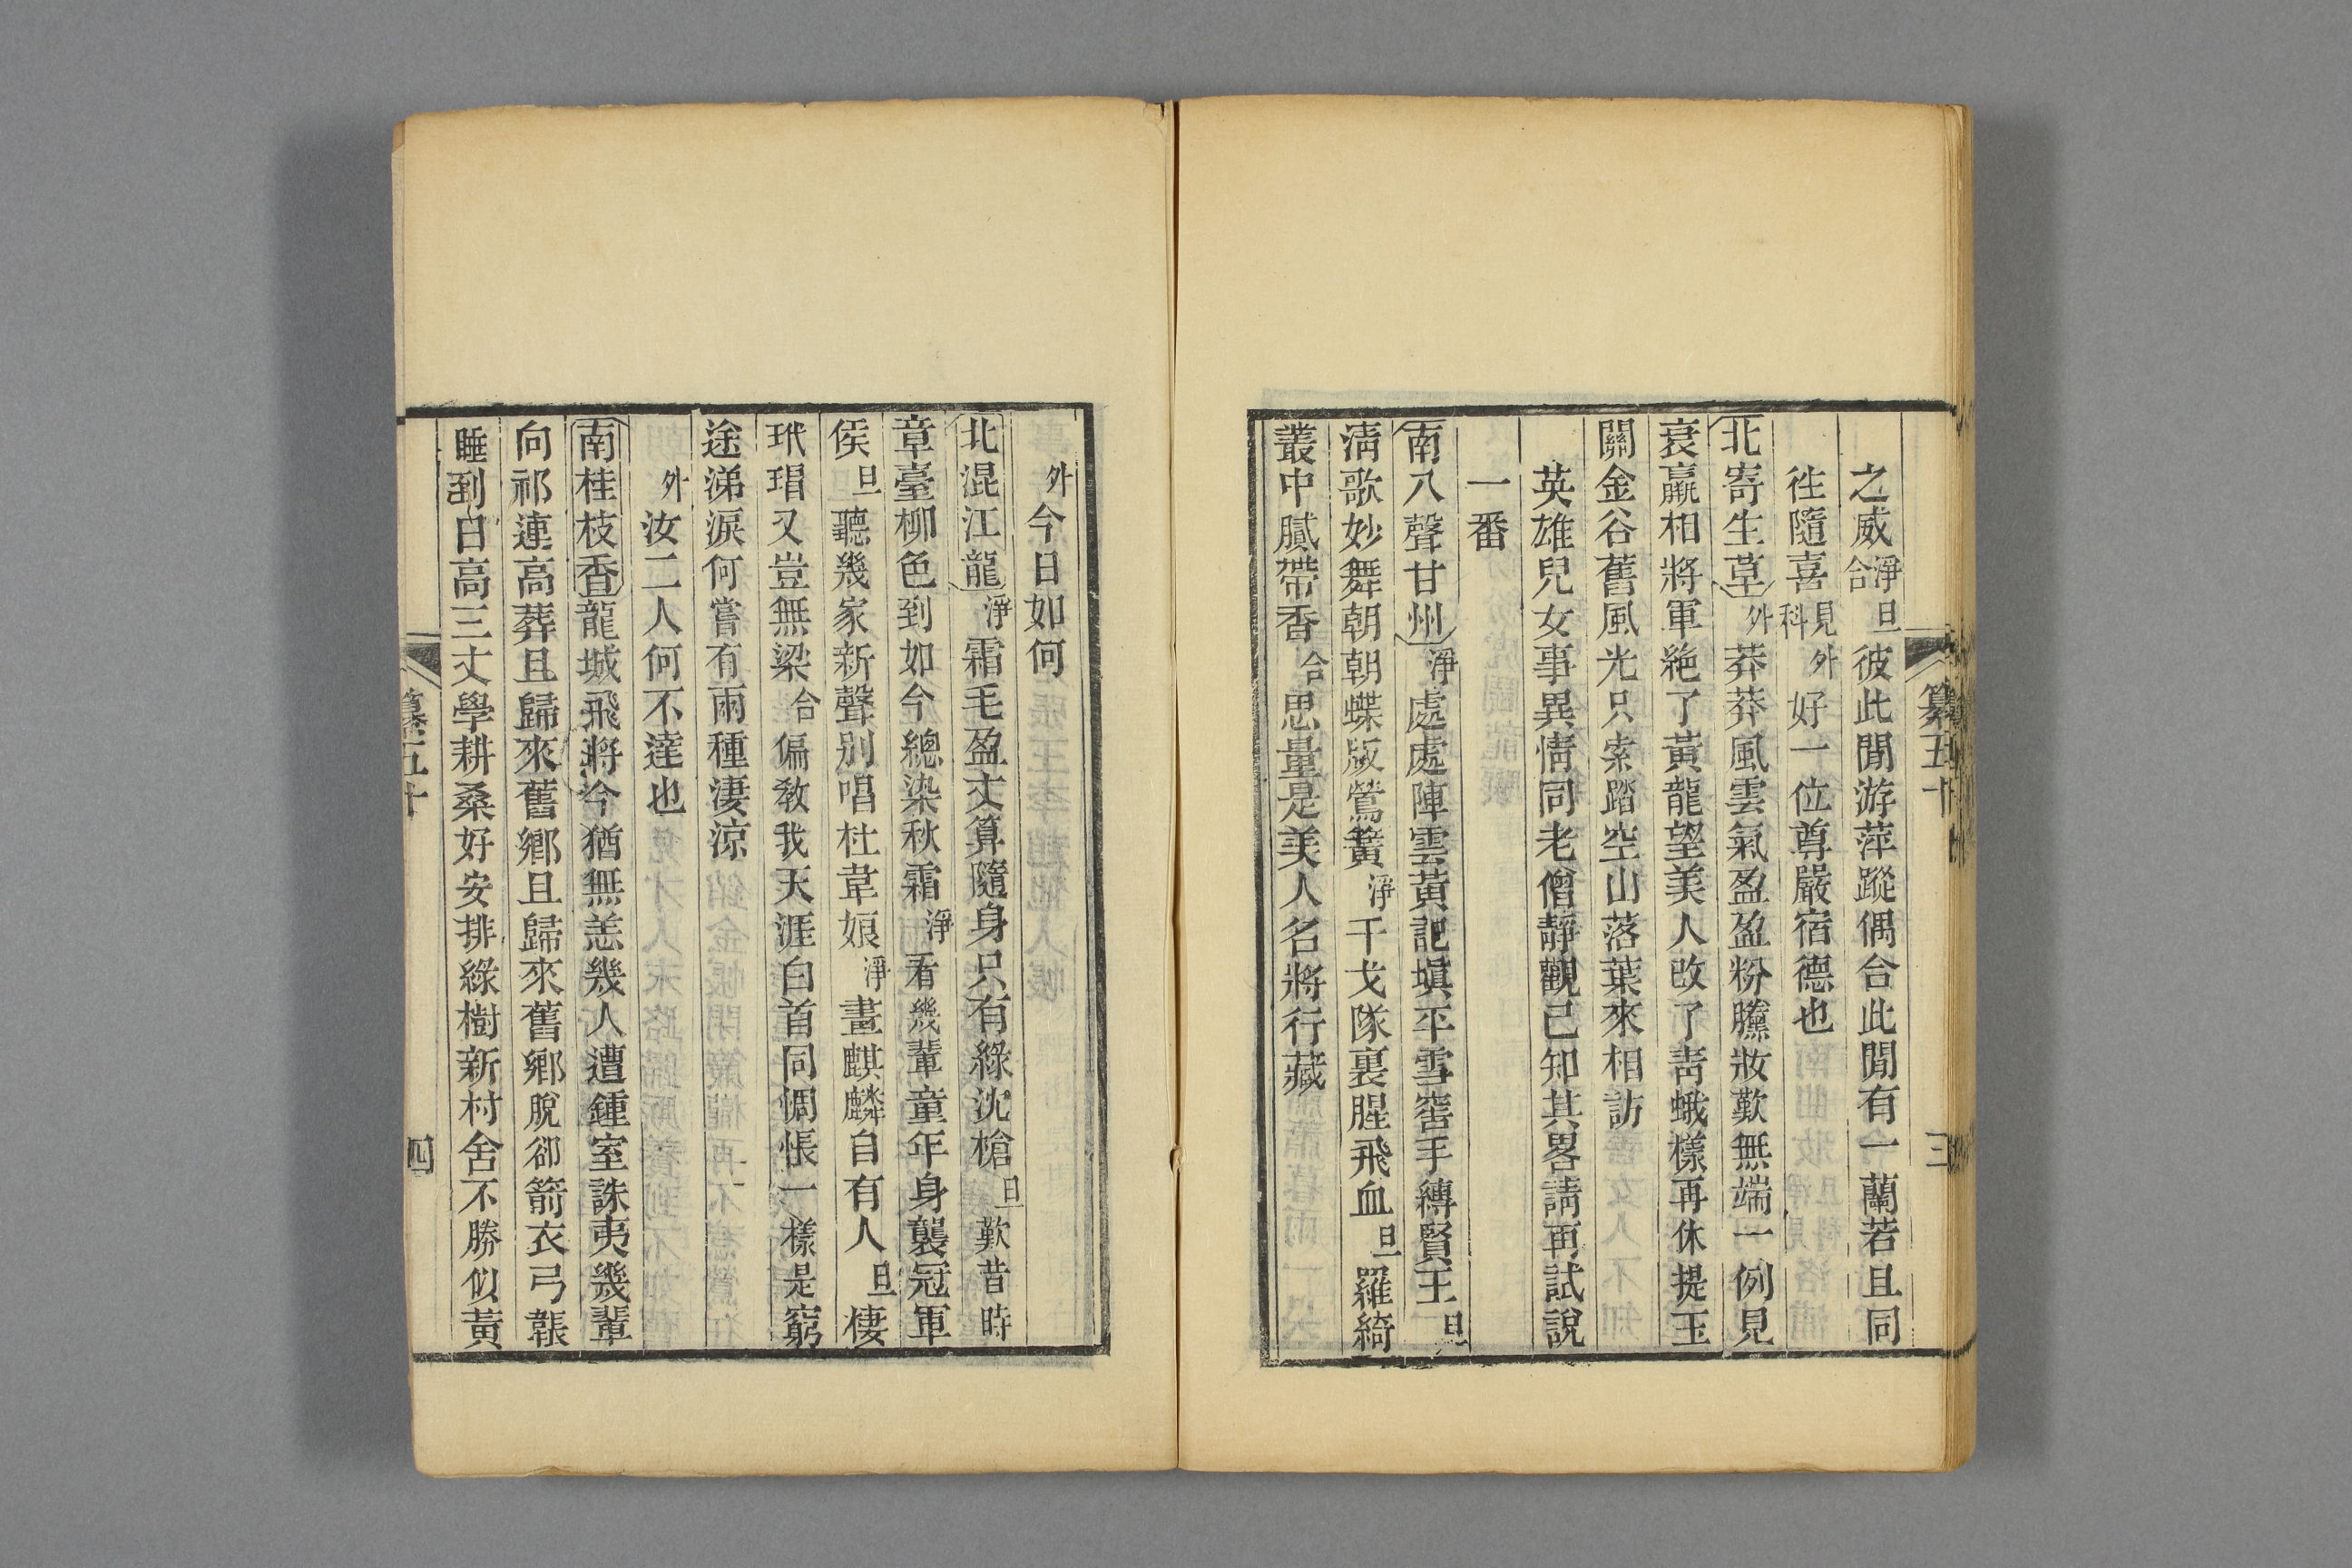 之威淨旦合彼此閒游萍蹤偶合此閒有一蘭若且同
徃隨喜見科外好一位尊嚴宿德也
北寄生草外莽莽風雲氣盈盈粉黱妝歎無端一例見
衰羸相將軍絶了黃龍望美人改了靑蛾樣再休提玉
關金谷舊風光只索踏空山落葉來相訪
英雄兒女事異情同老僧靜觀已知其畧請再試說
一番
南八聲甘州淨處處陣雲黃記塡平雪窖手縛賢王旦
淸歌妙舞朝朝蝶版鶯簧淨干戈隊裏腥飛血旦羅綺
叢中膩帶香合思量是美人名將行藏
纂五十
三
外今日如何
北混江龍淨霜毛盈丈算隨身只有綠沈槍旦歎昔時
章臺柳色到如今總染秋霜淨看幾輩童年身襲冠軍
侯旦聽幾家新聲別唱杜韋娘淨畫麒麟自有人旦棲
玳瑁又豈無梁合偏敎我天涯白首同惆悵一樣是窮
途涕淚何嘗有兩種淒涼
外汝二人何不達也
南桂枝香龍城飛將今猶無恙幾人遭鍾室誅夷幾輩
向祁連高葬且歸來舊鄉且歸來舊鄉脫卻箭衣弓韔
睡到日高三丈學耕桑好安排綠樹新村舍不勝似黃
纂五十
四